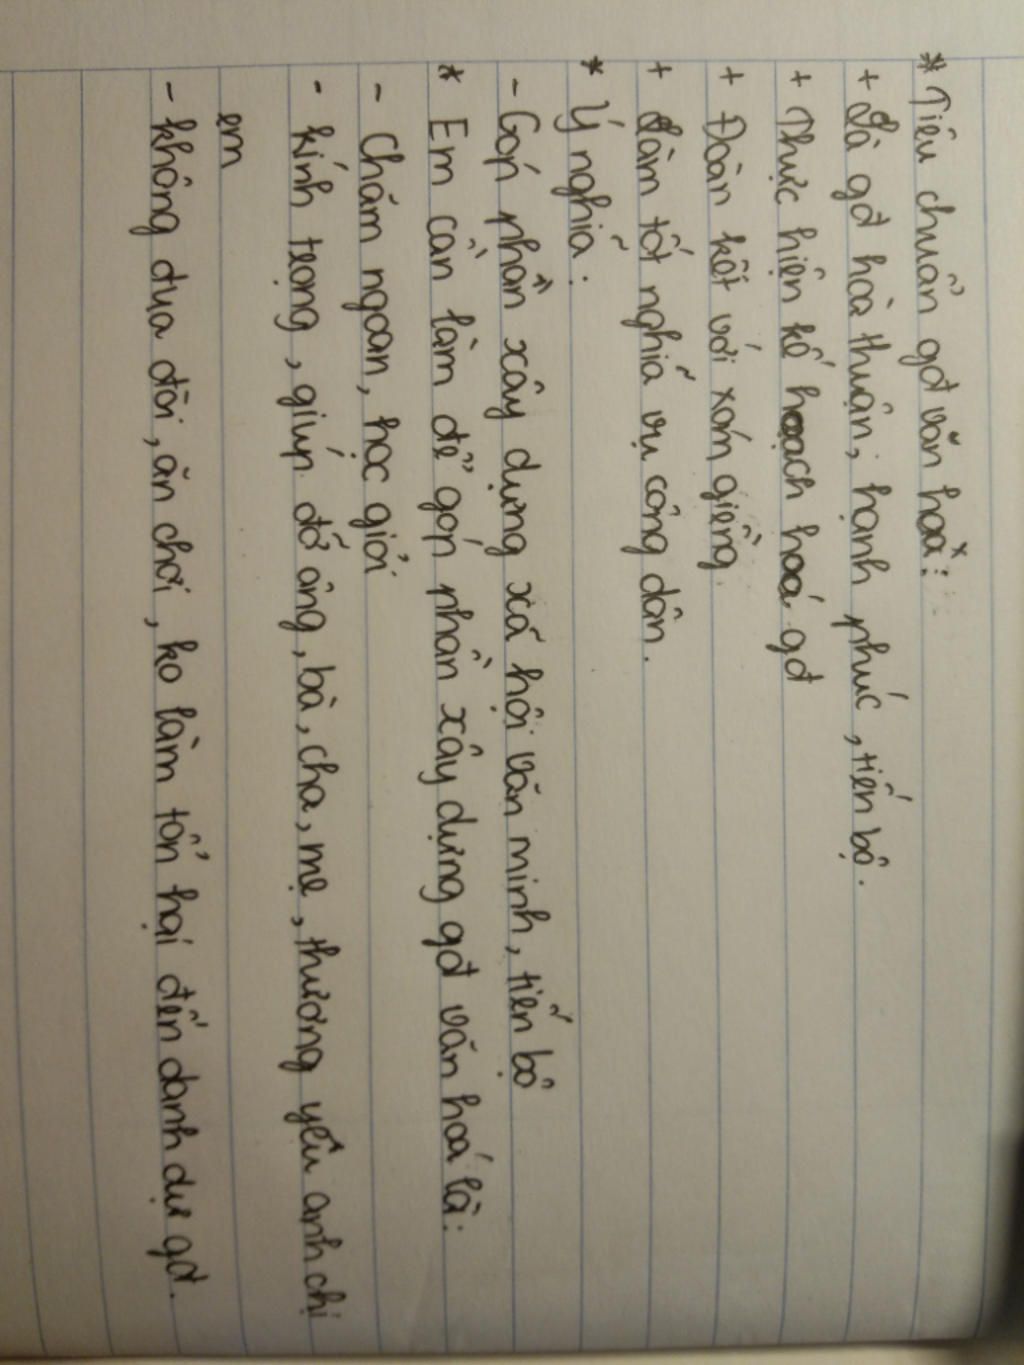 * Tiêu chuẩn gđ văn hoá:
+ Là gđ hòa thuận, hạnh phúc, tiến bộ.
+ Thực hiện kế hoạch hoá gđ
+ Đoàn kết với xóm giềng.
+ Làm tốt nghĩa vụ công dân.
* Ý nghĩa:
- Góp phần xây dựng xã hội văn minh, tiến bộ
* Em cần làm để góp phần xây dựng gđ văn hoá là:
- Chăm ngoan, học giỏi
- kính trọng, giúp đỡ ông, bà, cha, mẹ, thương yêu anh chị
em
- không đua đòi, ăn chơi, ko làm tổn hại đến danh dự gđ.